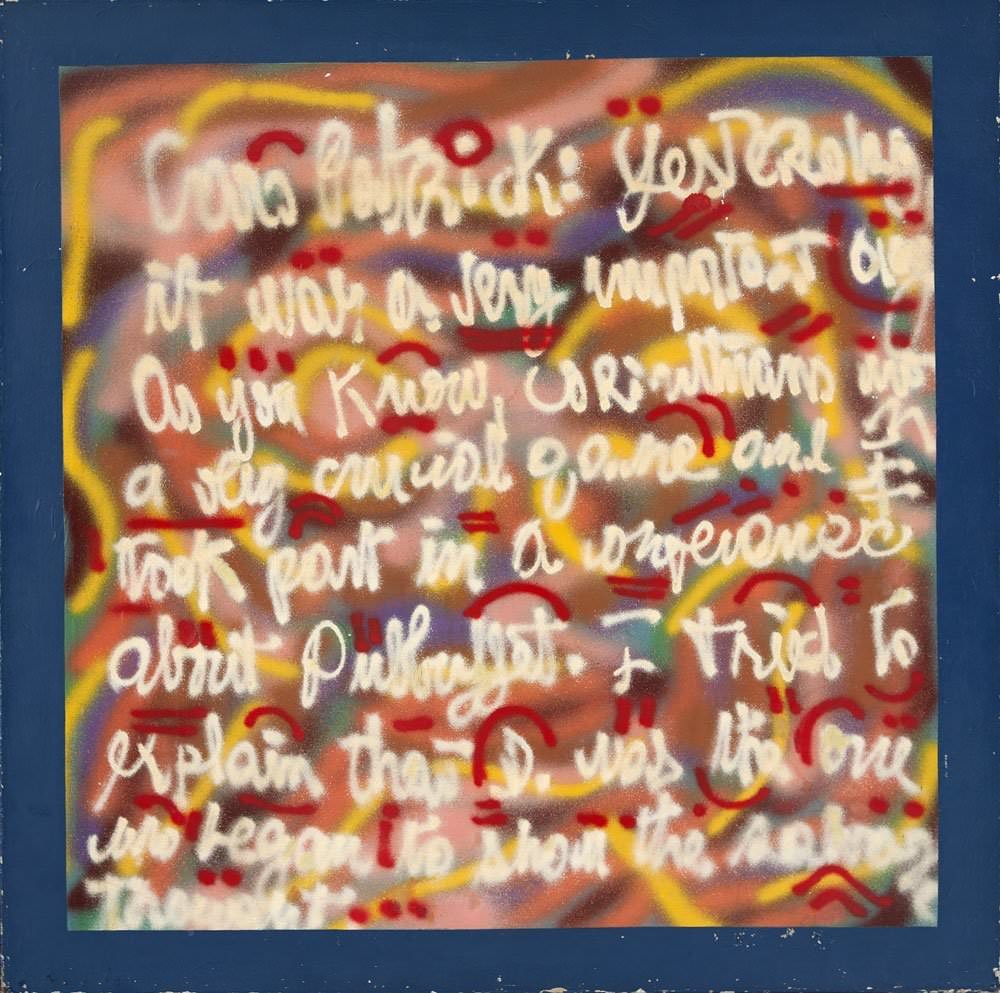 Patrick: Yesterday
it was a very important day
As you know, Corinthians
a very crucial game and I
took part in a
about I tried to
explain that D. was the one
who began to show the